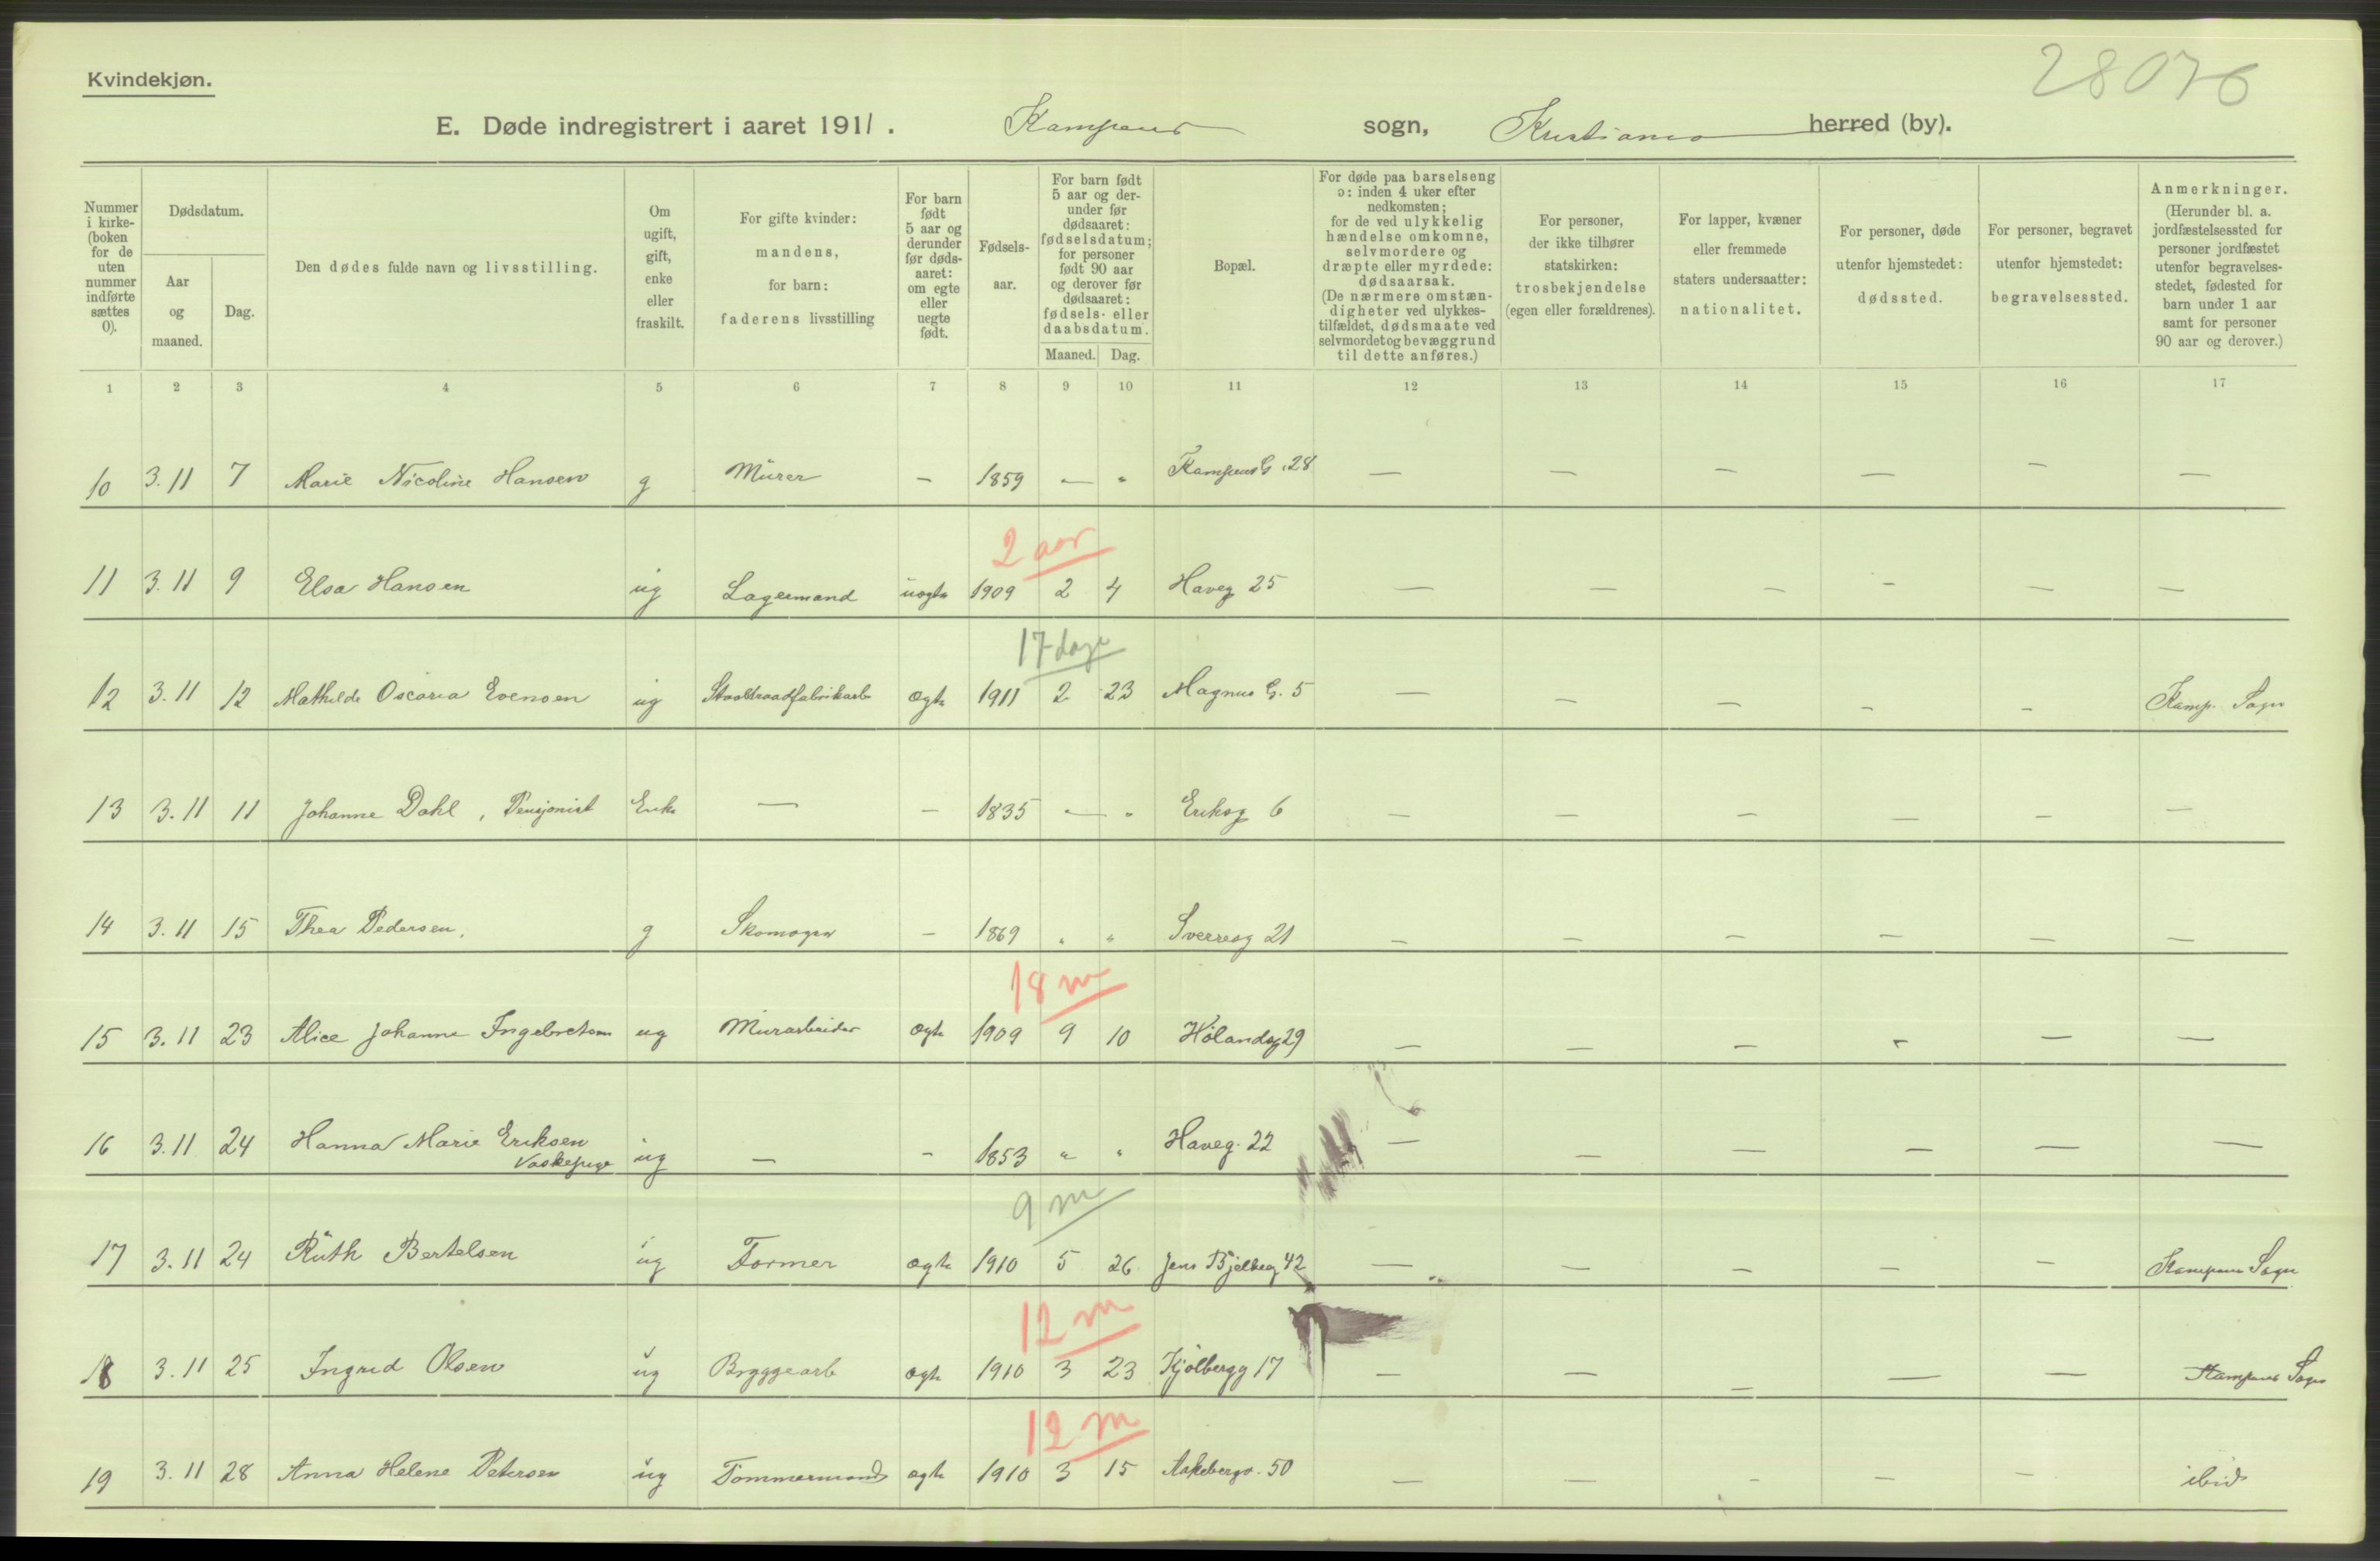 28076
Kvindekjøn.
E. Døde indregistrert i aaret 1911. Kampens sogn, Kristiania herred (by).
Nummer i kirke- (boken for de uten nummer indførte sættes 0).
Dødsdatum.
Aar og maaned.
Dag.
Den dødes fulde navn og livsstilling.
Om ugift, gift, enke eller fraskilt.
For gifte kvinder: mandens, for barn: faderens livsstilling
For barn født 5 aar og derunder før døds- aaret: om egte eller uegte født.
Fødsels- aar.
For barn født 5 aar og der- under før dødsaaret: fødselsdatum; for personer født 90 aar og derover før dødsaaret: fødsels- eller daabsdatum.
Maaned. Dag.
Bopæl.
For døde paa barselseng ɔ: inden 4 uker efter nedkomsten; for de ved ulykkelig hændelse omkomne, selvmordere og dræpte eller myrdede: dødsaarsak. (De nærmere omstæn- digheter ved ulykkes- tilfældet, dødsmaate ved selvmordet og bevæggrund til dette anføres.)
For personer, der ikke tilhører statskirken: trosbekjendelse (egen eller forældrenes).
For lapper, kvæner eller fremmede staters undersaatter: nationalitet.
For personer, døde utenfor hjemstedet: dødssted.
For personer, begravet utenfor hjemstedet: begravelsessted.
Anmerkninger. (Herunder bl. a. jordfæstelsessted for personer jordfæstet utenfor begravelses- stedet, fødested for barn under 1 aar samt for personer 90 aar og derover.)
1 2 3 4 5 6 7 8 9 10 11 12 13 14 15 16 17
10 3.11 7 Marie Nicoline Hansen g Murer — 1859 — " Kampens G. 28 — — — — — —
2 aar
11 3.11 9 Elsa Hansen ug Lagermand uegte 1909 2 4 Haveg 25 — — — — — —
17 dage
12 3.11 12 Mathilde Oscaria Evensen ug Staaltraadfabrikarb ægte 1911 2 23 Magnus G. 5 — — — — — Kamp. Sogn
13 3.11 11 Johanne Dahl, Pensjonist Enke — — 1835 — " Eriksg 6 — — — — — —
14 3.11 15 Thea Pedersen, g Skomager — 1869 " " Sverresg 21 — — — — — —
18 m
15 3.11 23 Alice Johanne Ingebretsen ug Murarbeider ægte 1909 9 10 Hølandsg 29 — — — — — —
16 3.11 24 Hanna Marie Eriksen ug — — 1853 " " Haveg. 22 — — — — — —
Vaskepige
9 m
17 3.11 24 Ruth Bertelsen ug Former ægte 1910 5 26 Jens Bjelkeg 42 — — — — — Kampens Sogn
12 m
18 3.11 25 Ingrid Olsen ug Bryggearb ægte 1910 3 23 Kjølbergg 17 — — — — — Kampens Sogn
12 m
19 3.11 28 Anna Helene Petersen ug Tømmermand ægte 1910 3 15 Aakebergv. 50 — — — — — ibid